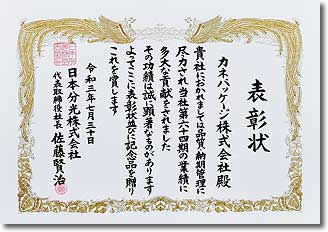 表彰状
カネパッケージ株式会社殿
貴社におかれましては品質、納期管理に
尽力され当社第六十四期の業績に
多大な貢献をされました
その功績は誠に顕著なものがあります
よってここに表彰状並びに記念品を贈り
これを賞します
令和三年七月三十日
日本分光株式会社
代表取締役社長 佐藤賢治